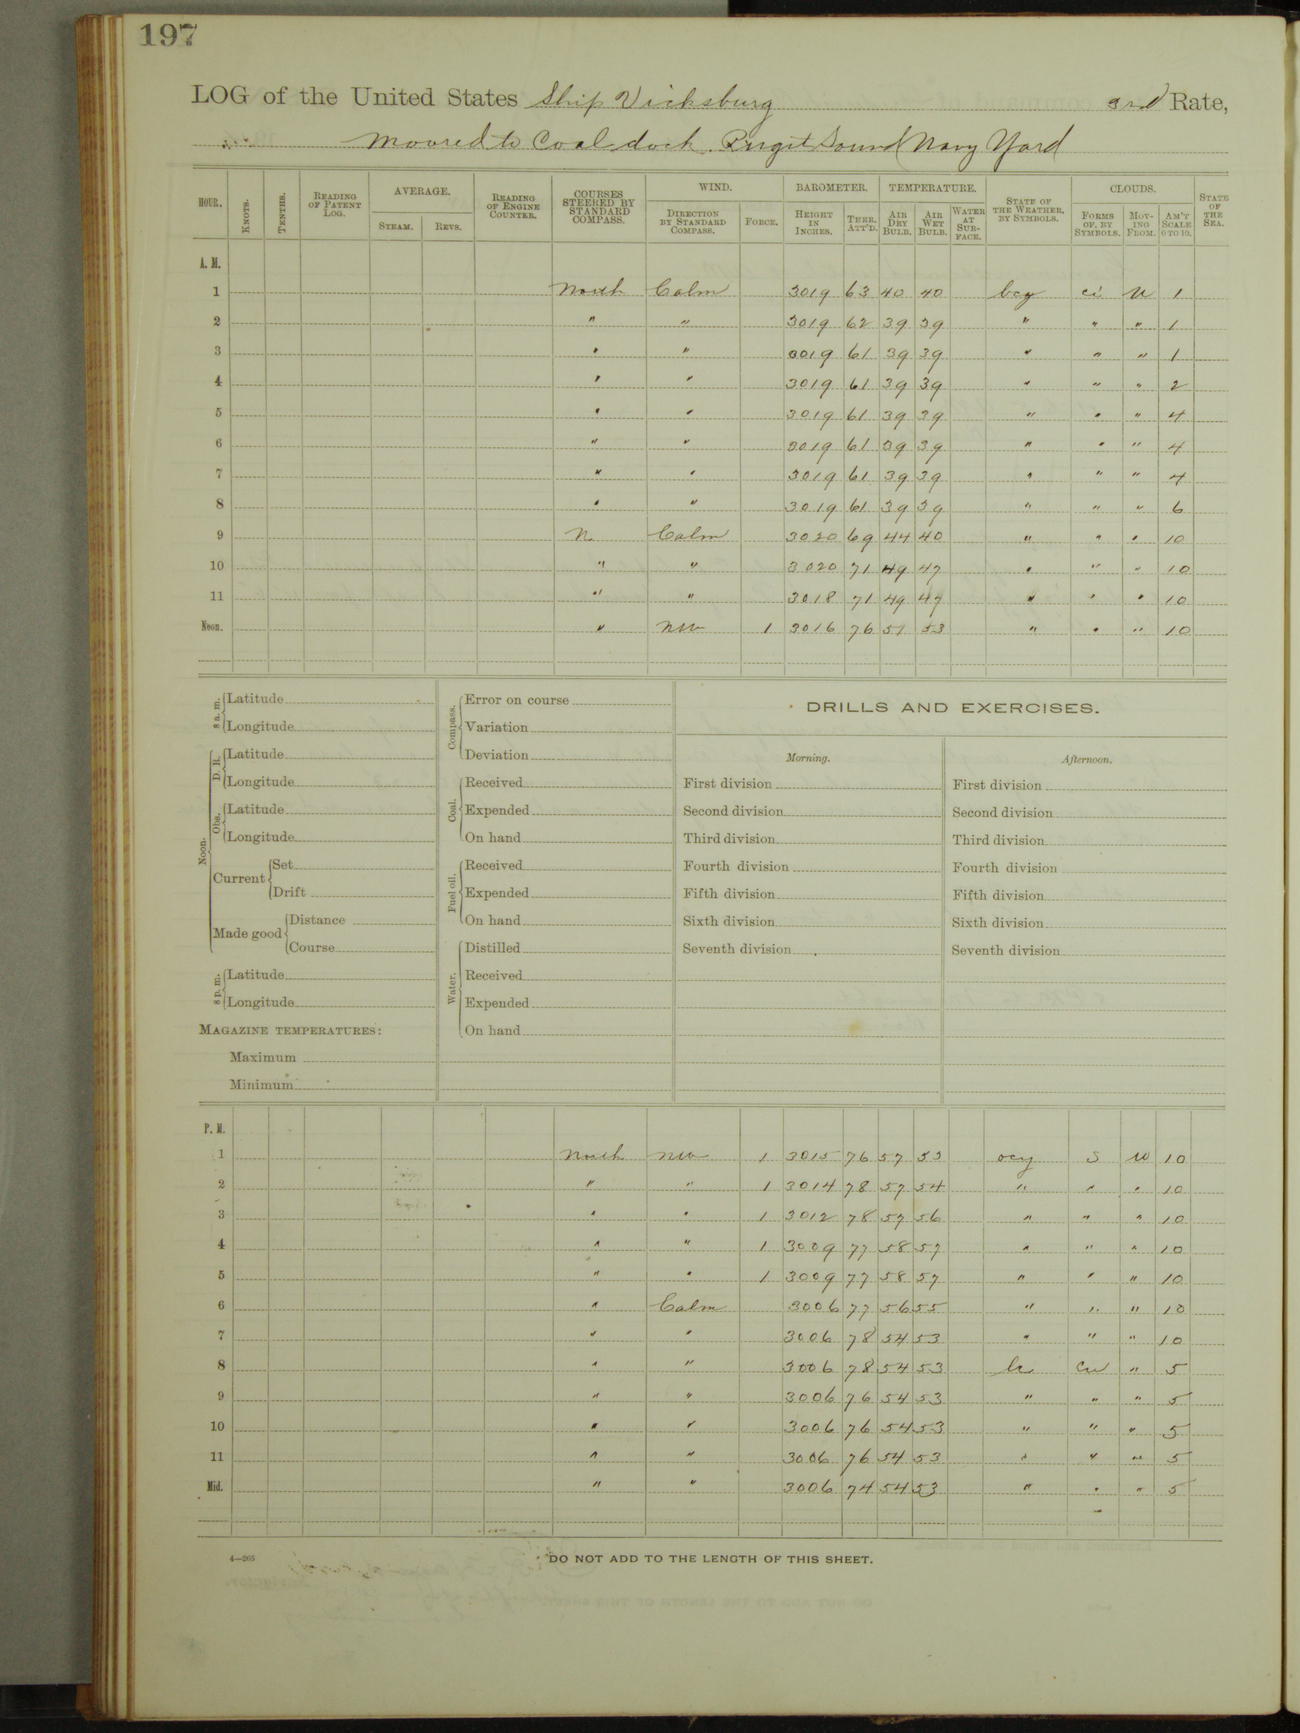 197
LOG of the United States Ship Vicksburg 3rd Rate,
Moored to Coal dock. Puget Sound Navy Yard
HOUR. KNOTS. TENTHS. READING OF PATENT LOG. AVERAGE. STEAM. REVS. READING OF ENGINE COUNTER. COURSES STEERED BY STANDARD COMPASS. WIND. DIRECTION BY STANDARD COMPASS. FORCE. BAROMETER. HEIGHT IN INCHES. THER. ATT'D. TEMPERATURE. AIR DRY BULB. AIR WET BULB. WATER AT SURFACE. STATE OF THE WEATHER, BY SYMBOLS. CLOUDS. FORMS OF, BY SYMBOLS. MOVING FROM. AM'T SCALE 0 TO 10. STATE OF THE SEA.
A. M.
1 North Calm 3019 63 40 40 bcy ci W 1
2 " " 3019 62 39 39 " " " 1
3 " " 3019 61 39 39 " " " 1
4 " " 3019 61 39 39 " " " 2
5 " " 3019 61 39 39 " " " 4
6 " " 3019 61 39 39 " " " 4
7 " " 3019 61 39 39 " " " 4
8 " " 3019 61 39 39 " " " 6
9 N Calm 3020 69 44 40 " " " 10
10 " " 3020 71 49 47 " " " 10
11 " " 3018 71 49 47 " " " 10
Noon. " NW 1 3016 76 57 53 " " " 10
8 a. m. Latitude
Longitude
Noon. D. R. Latitude
Longitude
Obs. Latitude
Longitude
Current Set
Drift
Made good Distance
Course
8 p. m. Latitude
Longitude
MAGAZINE TEMPERATURES:
Maximum
Minimum
Compass. Error on course
Variation
Deviation
Coal. Received
Expended
On hand
Fuel oil. Received
Expended
On hand
Water. Distilled
Received
Expended
On hand
DRILLS AND EXERCISES.
Morning. Afternoon.
First division First division
Second division Second division
Third division Third division
Fourth division Fourth division
Fifth division Fifth division
Sixth division Sixth division
Seventh division Seventh division
P. M.
1 North NW 1 3015 76 57 53 ocy S W 10
2 " " 1 3014 78 57 54 " " " 10
3 " " 1 3012 78 57 56 " " " 10
4 " " 1 3009 77 58 57 " " " 10
5 " " 1 3009 77 58 57 " " " 10
6 " Calm 3006 77 56 55 " " " 10
7 " " 3006 78 54 53 " " " 10
8 " " 3006 78 54 53 bc cu " 5
9 " " 3006 76 54 53 " " " 5
10 " " 3006 76 54 53 " " " 5
11 " " 3006 76 54 53 " " " 5
Mid. " " 3006 74 54 53 " " " 5
4—265 DO NOT ADD TO THE LENGTH OF THIS SHEET.